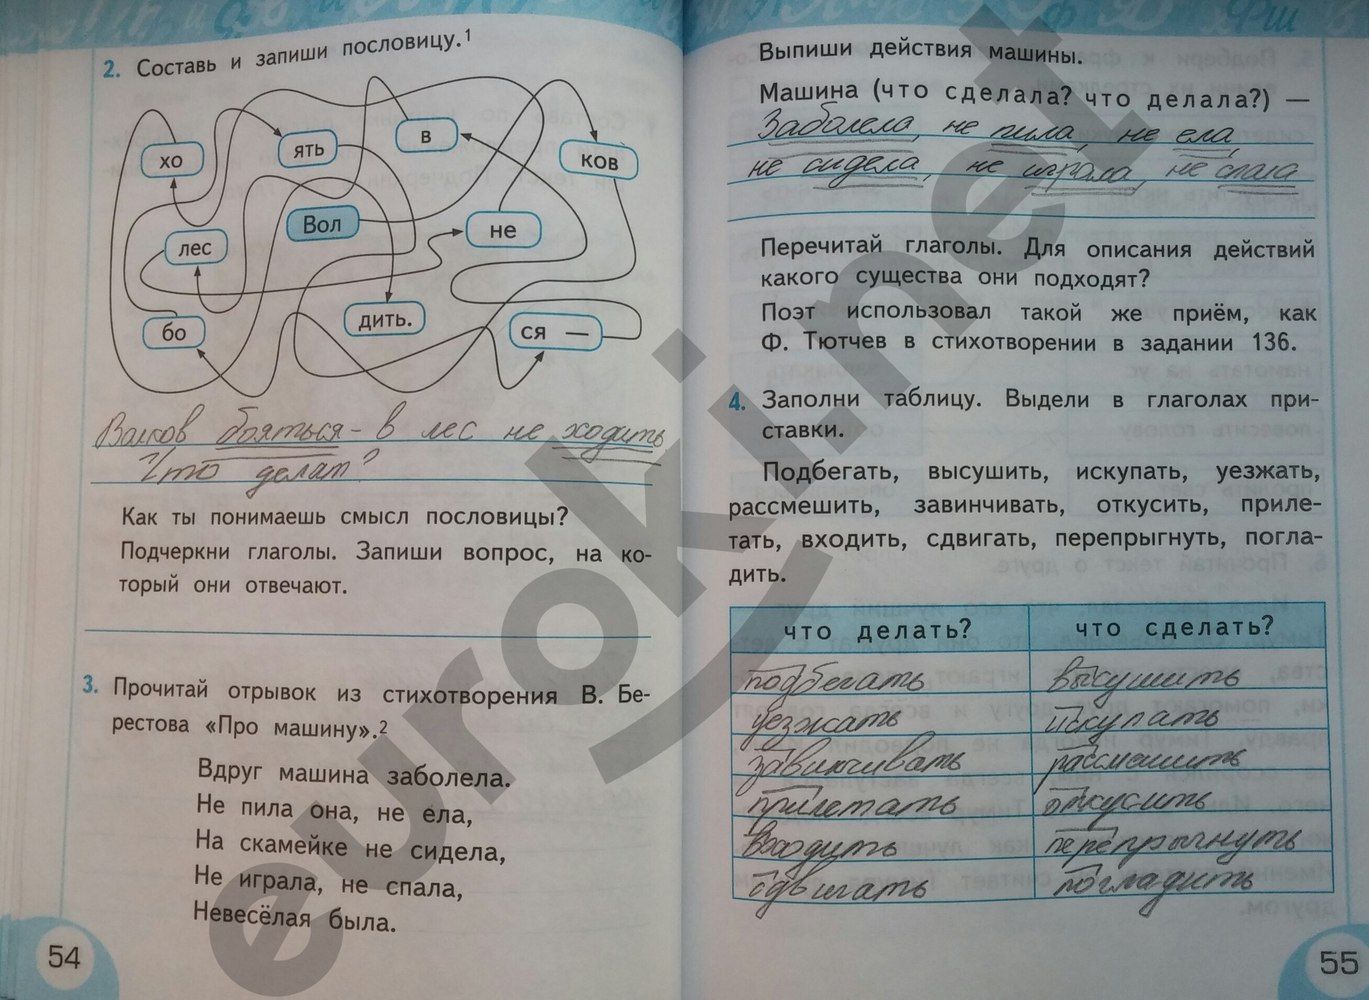 2. Составь и запиши пословицу.¹
хо
ять
в
ков
Вол
не
лес
бо
дить.
ся —
Волков бояться - в лес не ходить
Что делат?
Как ты понимаешь смысл пословицы?
Подчеркни глаголы. Запиши вопрос, на ко-
торый они отвечают.
3. Прочитай отрывок из стихотворения В. Бе-
рестова «Про машину».²
Вдруг машина заболела.
Не пила она, не ела,
На скамейке не сидела,
Не играла, не спала,
Невесёлая была.
54
Выпиши действия машины.
Машина (что сделала? что делала?) —
Заболела, не пила, не ела,
не сидела, не играла, не спала
Перечитай глаголы. Для описания действий
какого существа они подходят?
Поэт использовал такой же приём, как
Ф. Тютчев в стихотворении в задании 136.
4. Заполни таблицу. Выдели в глаголах при-
ставки.
Подбегать, высушить, искупать, уезжать,
рассмешить, завинчивать, откусить, приле-
тать, входить, сдвигать, перепрыгнуть, погла-
дить.
что делать? что сделать?
подбегать высушить
уезжать искупать
завинчивать рассмешить
прилетать откусить
входить перепрыгнуть
сдвигать погладить
55
euroki.net